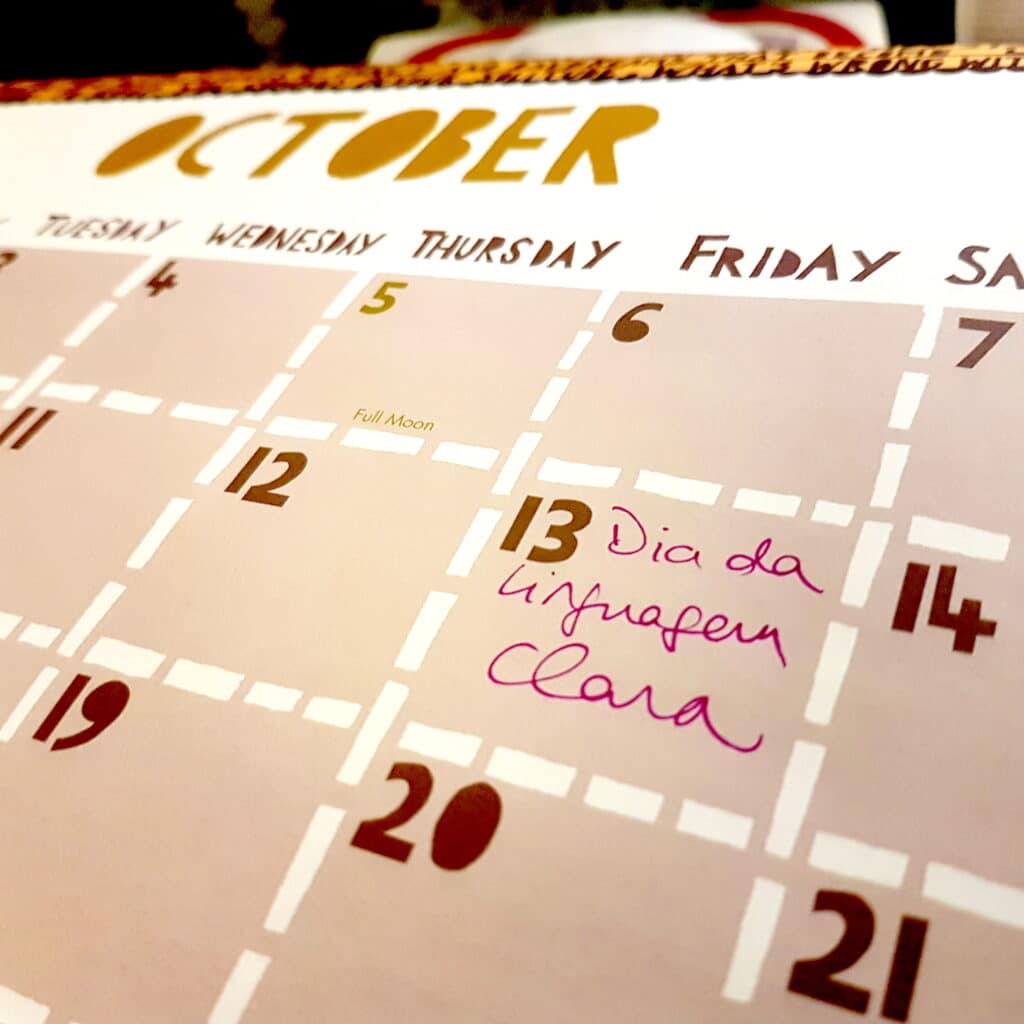 OCTOBER
TUESDAY WEDNESDAY THURSDAY FRIDAY SA
3 4 5 6 7
Full Moon
11 12 13 14
Dia da
linguagem
Clara
19 20 21